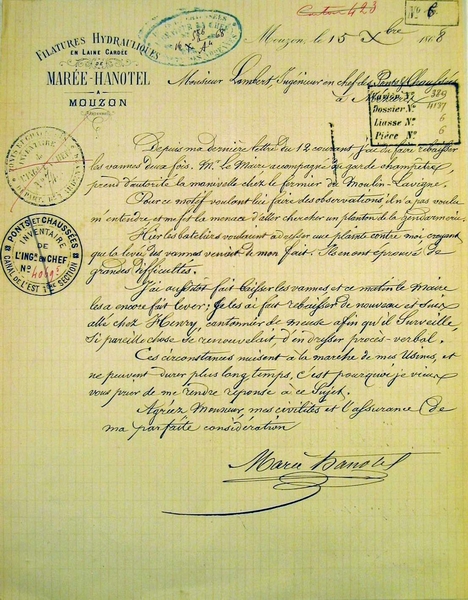 FILATURES HYDRAULIQUES
EN LAINE CARDÉE
DE
MARÉE-HANOTEL
A
MOUZON
Carton 423
N° 6
Mouzon, le 15 Xbre 1868
Monsieur Lambert Ingénieur en chef des Ponts & Chaussées
à Mézières
Carton N° 389
Dossier N° 11137
Liasse N° 6
Pièce N° 6
Depuis ma dernière lettre du 12 courant j'ai dû faire rebaisser
les vannes deux fois. Mr le Maire accompagné du garde champêtre,
prend d'autorité la manivelle chez le fermier du Moulin-Lavigne.
Pour ce motif voulant lui faire des observations il n'a pas voulu
m'entendre, et me fit la menace d'aller chercher un planton de la Gendarmerie.
Hier les bateliers voulaient adresser une plainte contre moi croyant
que la levée des vannes venait de mon fait. Ils ont éprouvé de
grandes difficultés.
J'ai aussitôt fait baisser les vannes et ce matin le Maire
les a encore fait lever; je les ai fait rebaisser de nouveau et suis
allé chez Henry, cantonnier de meuse afin qu'il Surveille,
Si pareille chose se renouvelait d'en dresser procès-verbal.
Ces circonstances nuisent à la marche de mes Usines, et
ne peuvent durer plus longtemps, c'est pourquoi je viens
vous prier de me rendre réponse à ce Sujet.
Agréez Monsieur, mes civilités et l'assurance de
ma parfaite considération
Marée Hanotel
PONTS ET CHAUSSÉES
INVENTAIRE
DE
L'INGr EN CHEF
CANAL DE L'EST 1ère SECTION